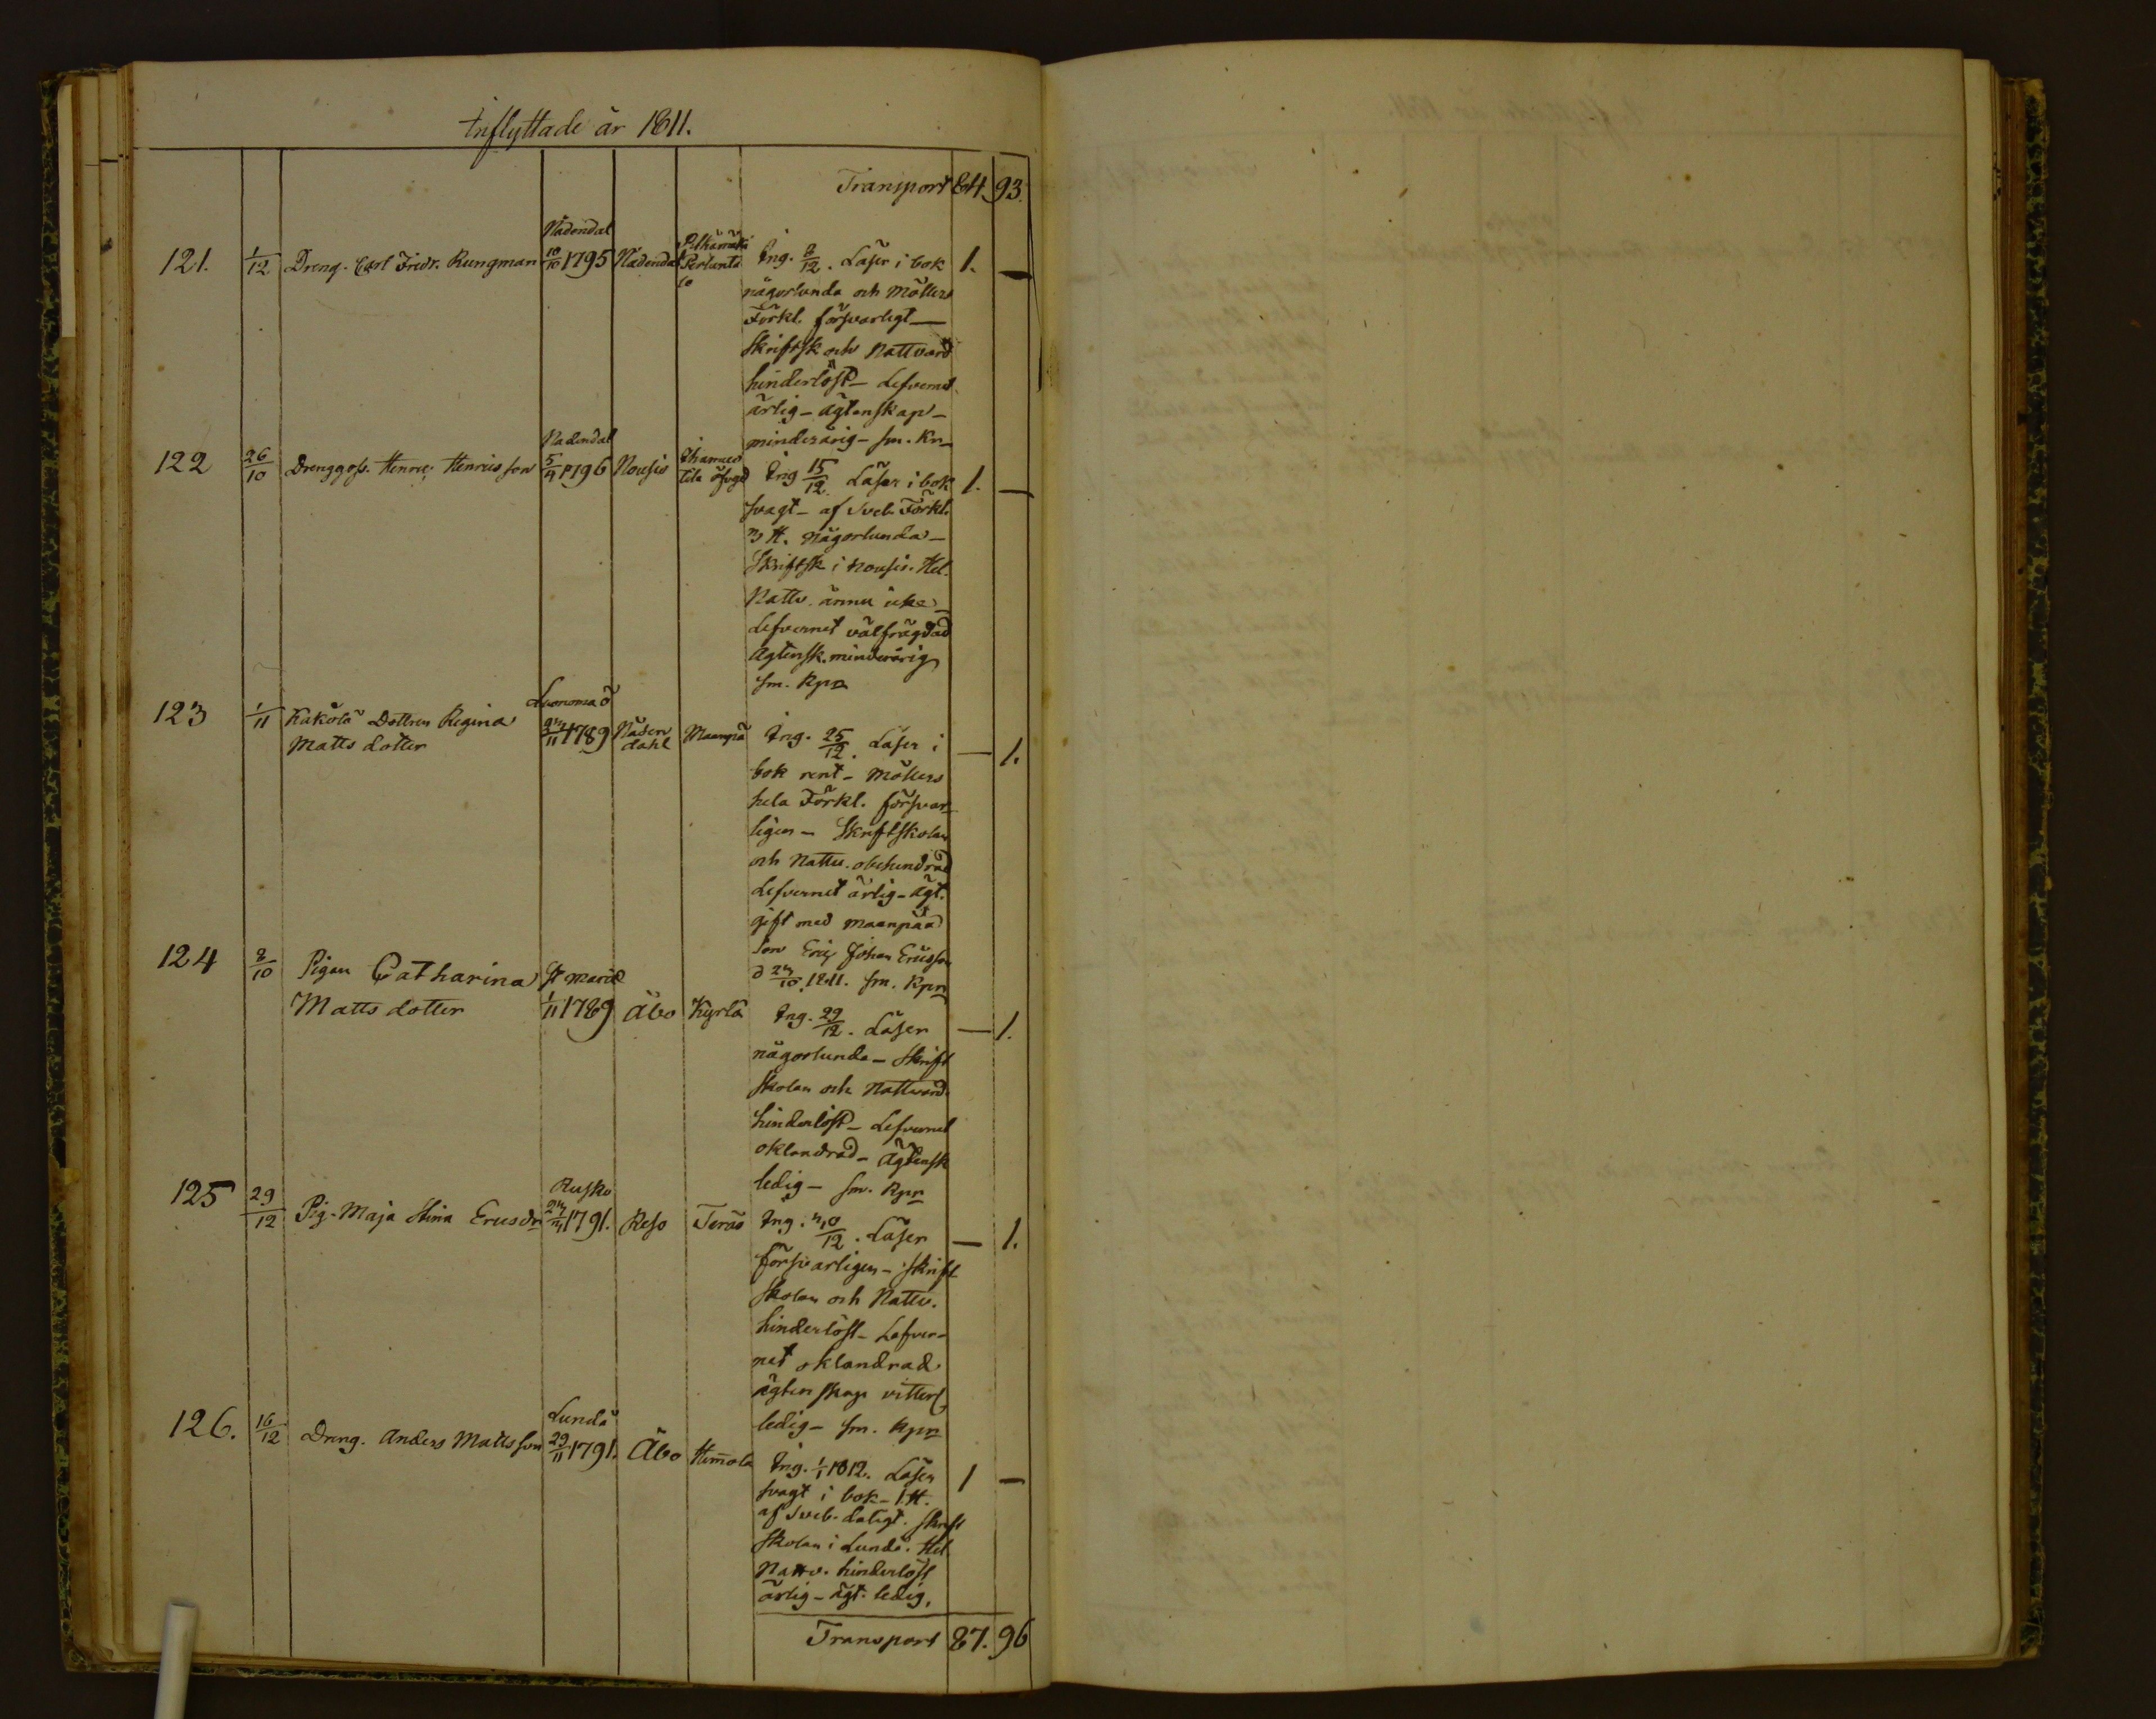 Inflyttade år 1811.
Transport 84. 93.
121. 1/12 Dreng. Carl Fredr. Rungman Nådendal 18/10 1795 Nådendal Ing. 8/12. Läser i bok 1. —
någorlunda och Möllers
Förkl. försvarligt —
Skriftsk. och Nattvard
hinderlöst – Lefvernet
ärlig – Ägtenskap –
minderårig – sm. Kn
122 26/10 Drenggoss. Henric Henrics son Nadendal 5/4 1796 Nousis Ing 15/12. Läser i bok 1. —
svagt – af Sveb. Förkl.
3 H. någorlunda –
Skriftsk i Nousis. Hel.
Nattv. ännu icke –
Lefvernet välfrägdad
Ägtensk. minderårig
sm. Kpn
123 1/11 Kaköla Dottren Regina Luonnonmaa 1789 Nåden Maanpä Ing. 25/12. Läser i — 1.
Matts dotter dahl
bok rent – Möllers
hela Förkl. försvar
ligen – Skriftskolan
och Nattv. obehindrad
Lefvernet ärlig – Ägt.
gift med Maanpää
son Eric Johan Ericsson
d 23/10. 1811. sm. Kpn
124 8/10 Pigan Catharina St Mariæ
Matts dotter 1/11 1789 Åbo Kyrlä Ing. 29/12. Läser — 1.
någorlunda – Skrift
skolan och Nattvard
hinderlöst – Lefvernet
oklandrad – Ägtensk
ledig – sm. Kpn
125 29/12 Pig. Maja Stina Ericsdr Rusko 1791. Reso Teräs Ing. 30/12. Läser — 1.
försvarligen – Skrift
skolan och Nattv.
hinderlöst – Lefver-
net oklandrad
ägtenskap vitterl.
ledig – sm. Kpn
126. 16/12 Dreng. Anders Matts son Lundå 29/11 1791. Åbo Him̄ola Ing. 1/1 1812. Läser 1 —
svagt i bok – 1 H.
af Sveb. dåligt. Skrift
skolan i Lundå. Hel.
Nattv. hinderlöst
ärlig – Ägt. ledig.
Transport 87. 96